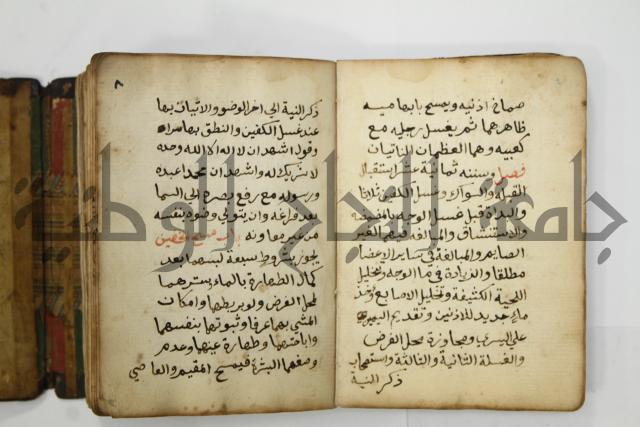 صماخ اذنيه ويمسح بابهاميه
ظاهرهما ثم يغسل رجليه مع
كعبيه وهما العظمان الناتيان
فصل وسننه ثمانية عشر استقبال
القبلة والسواك وغسل الكفين ثلاثا
والبداة قبل غسل الوجه بالمضمضة
والاستنشاق والمبالغة فيهما لغير
الصايم والمبالغة في ساير الاعضا
مطلقا والزيادة في ما الوجه وتخليل
اللحية الكثيفة وتخليل الاصابع واخذ
ماء جديد للاذنين وتقديم اليمين
على اليسرى ومجاوزة محل الفرض
والغسلة الثانية والثالثة واستصحاب
ذكر النية
٨
ذكر النية الى اخر الوضوء والاتيان بها
عند غسل الكفين والنطق بها سرا
وقول اشهد ان لا اله الا الله وحده
لا شريك له واشهد ان محمدا عبده
ورسوله مع رفع بصره الى السما
بعد فراغه وان يتولى وضوه بنفسه
من غير معاونه باب مسح الخفين
يجوز بشروط سبعة لبسهما بعد
كمال الطهارة بالماء وسترهما
لمحل الفرض ولو بربطهما وامكان
المشي بهما عرفا وثبوتهما بنفسهما
واباحتهما وطهارة عينهما وعدم
وصفهما البشرة فيمسح المقيم والعاصي
جامعة النجاح الوطنية